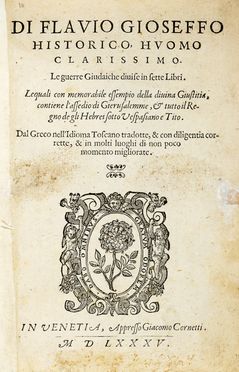 DI FLAVIO GIOSEFFO
HISTORICO, HVOMO
CLARISSIMO.
Le guerre Giudaiche diuise in sette Libri.
Lequali con memorabile essempio della diuina Giustitia,
contiene l'assedio di Gierusalemme, & tutto il Re-
gno de gli Hebrei sotto Vespasiano e Tito.
Dal Greco nell'Idioma Toscano tradotte, & con diligentia cor-
rette, & in molti luoghi di non poco
momento migliorate.
IN VENETIA, Appresso Giacomo Cornetti.
M D LXXXV.